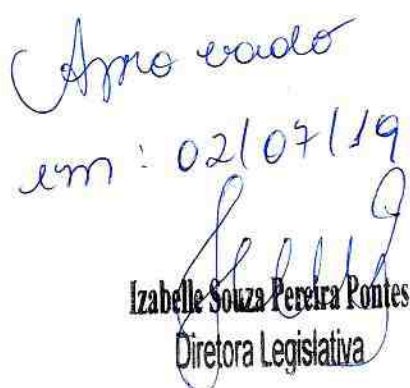 Aprovado
em: 02/07/19
Izabelle Souza Pereira Pontes
Diretora Legislativa